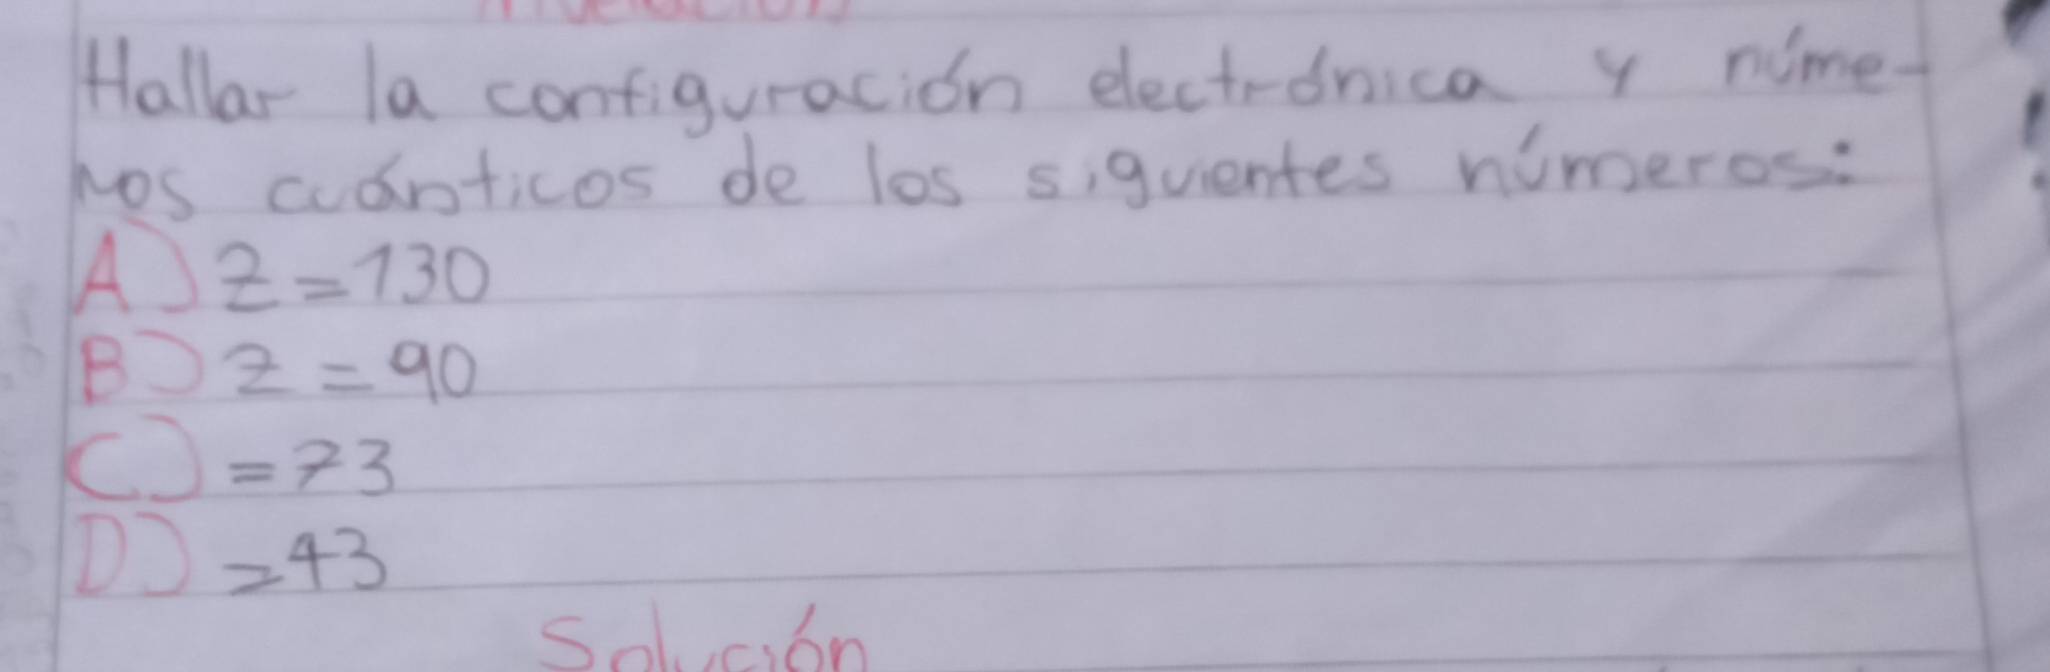 Nivelación
Hallar la configuración electrónica y núme-
ros cuánticos de los siguientes números:
A) Z=130
B) Z=90
C) =73
D) =43
Solución